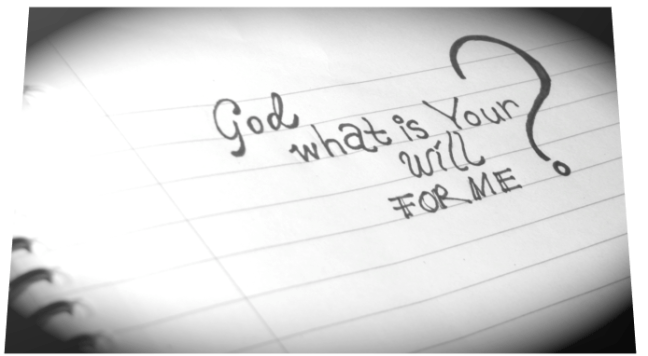 God
what is Your
will
FOR ME?